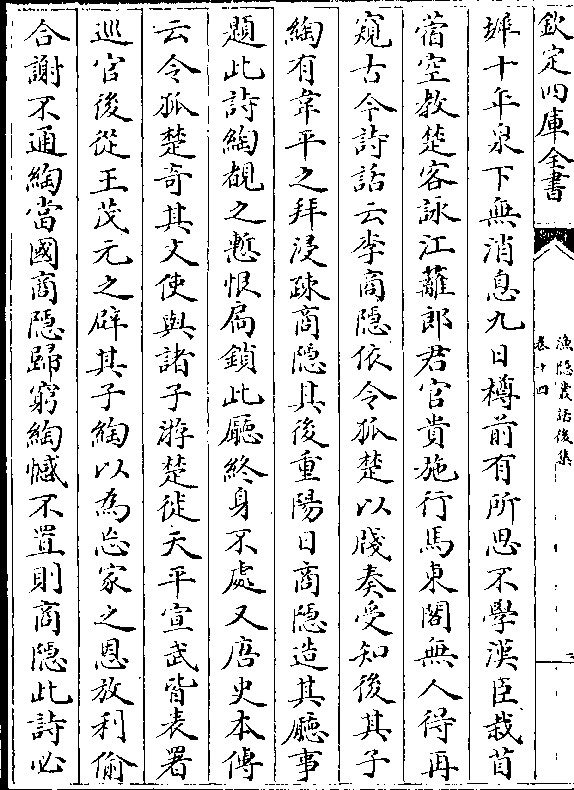 欽定四庫全書
漁隱叢話後集
卷十四
墀十年泉下無消息九日樽前有所思不學漢臣栽苜
蓿空教楚客詠江蘺郎君官貴施行馬東閣無人得再
窺古今詩話云李商隱依令狐楚以牋奏受知後其子
綯有韋平之拜浸疎商隱其後重陽日商隱造其廳事
題此詩綯覩之慙恨扄鎖此廳終身不處又唐史本傳
云令狐楚奇其文使與諸子游楚徙天平宣武皆表署
巡官後從王茂元之辟其子綯以為忘家之恩放利偷
合謝不通綯當國商隱歸窮綯憾不置則商隱此詩必